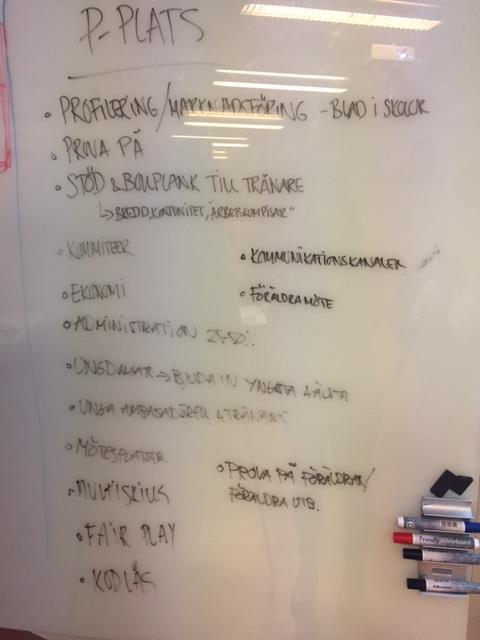 P-PLATS
• PROFILERING/MARKNADSFÖRING - BLAD I SKOLOR
• PROVA PÅ
• STÖD & BOLLPLANK TILL TRÄNARE
↳ BREDD, KONTINITET, "ARBETSKOMPISAR"
• KOMMITEER
• KOMMUNIKATIONSKANALER
• EKONOMI
• FÖRÄLDRAMÖTE
• ADMINISTRATION 25-50%
• UNGDOMAR → BJUDA IN YNGSTA & ÄLSTA
• UNGA AMBASADÖRER & TRÄNARE
• MÖTESPLATSER
• PROVA PÅ FÖRÄLDRAR/
FÖRÄLDRA UTB.
• MULTISKILLS
• FAIR PLAY
• KODLÅS
Friendly Whiteboard